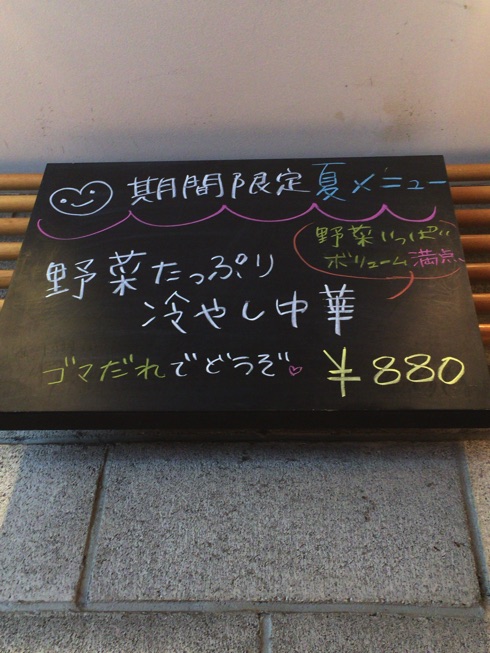 期間限定夏メニュー
野菜いっぱい
ボリューム満点
野菜たっぷり
冷やし中華
ゴマだれでどうぞ♡
¥880